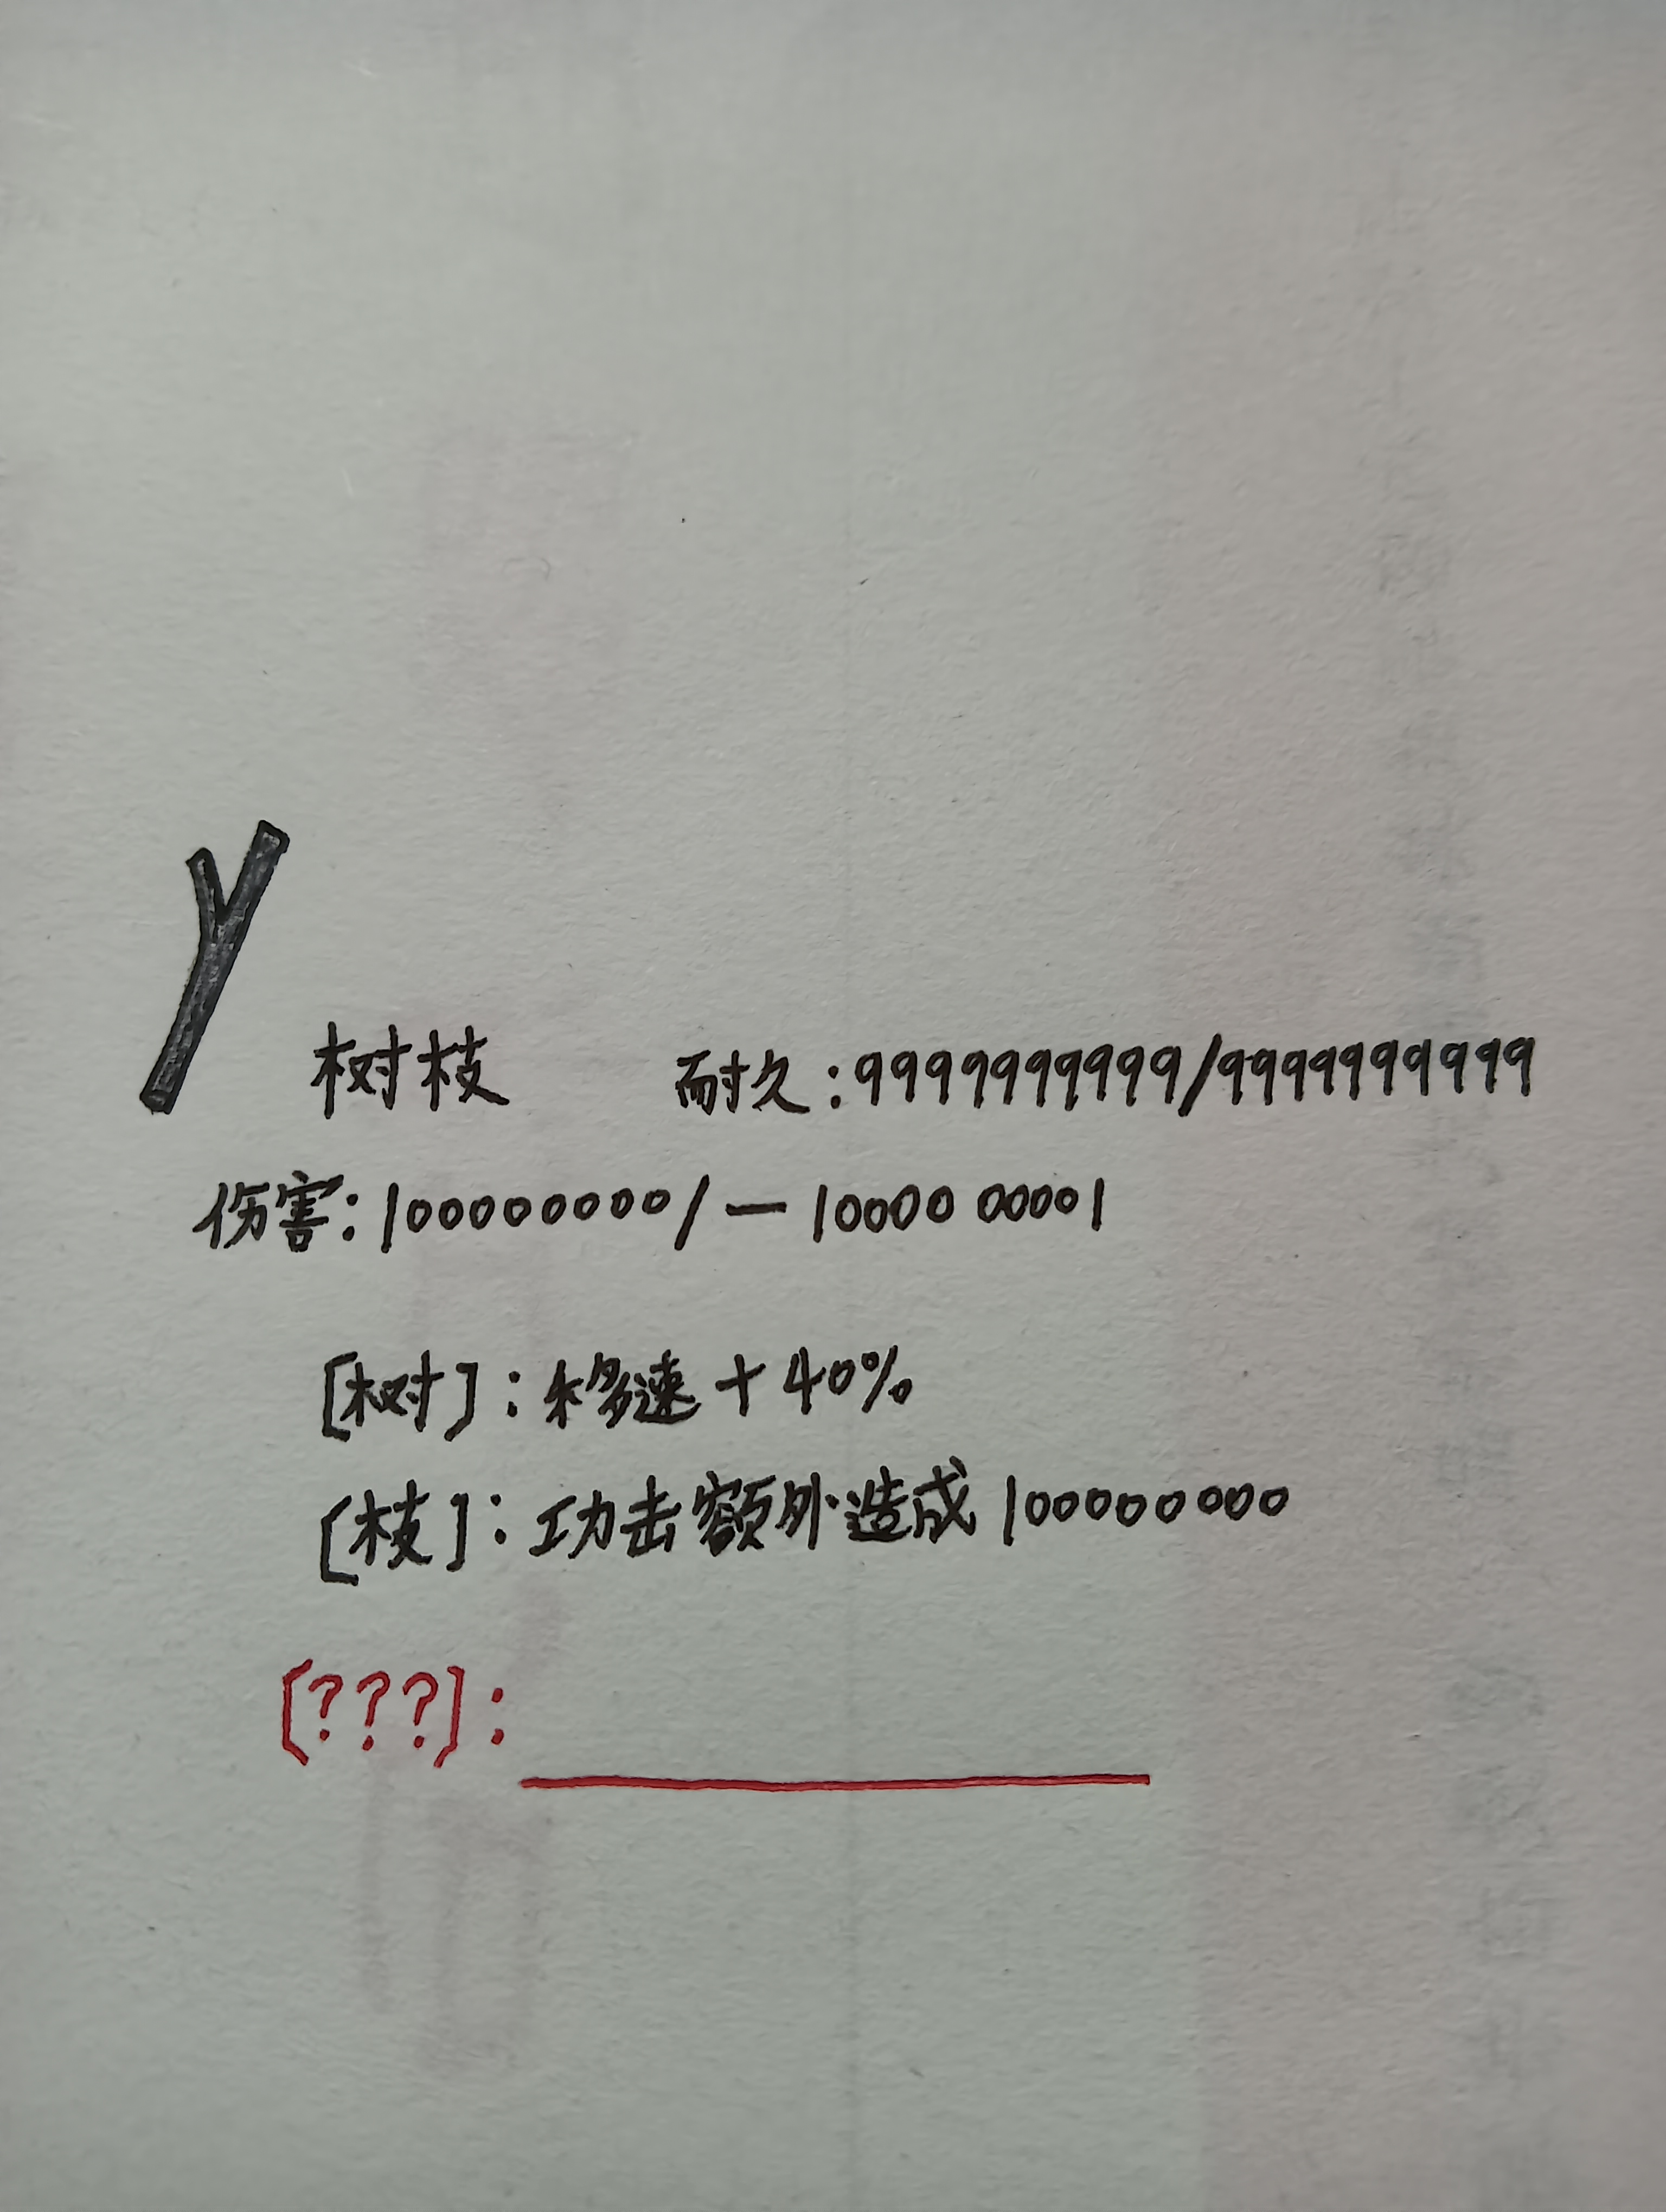 树枝 耐久:9999999999/9999999999
伤害:100000000/-100000001
[树]:移速+40%
[枝]:功击额外造成100000000
[???]: